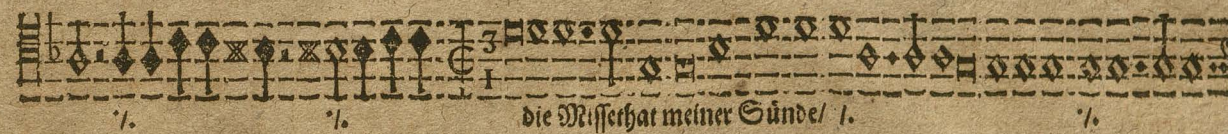 ⁒ ⁒ die Missethat meiner Sünde/ ⁒ ⁒